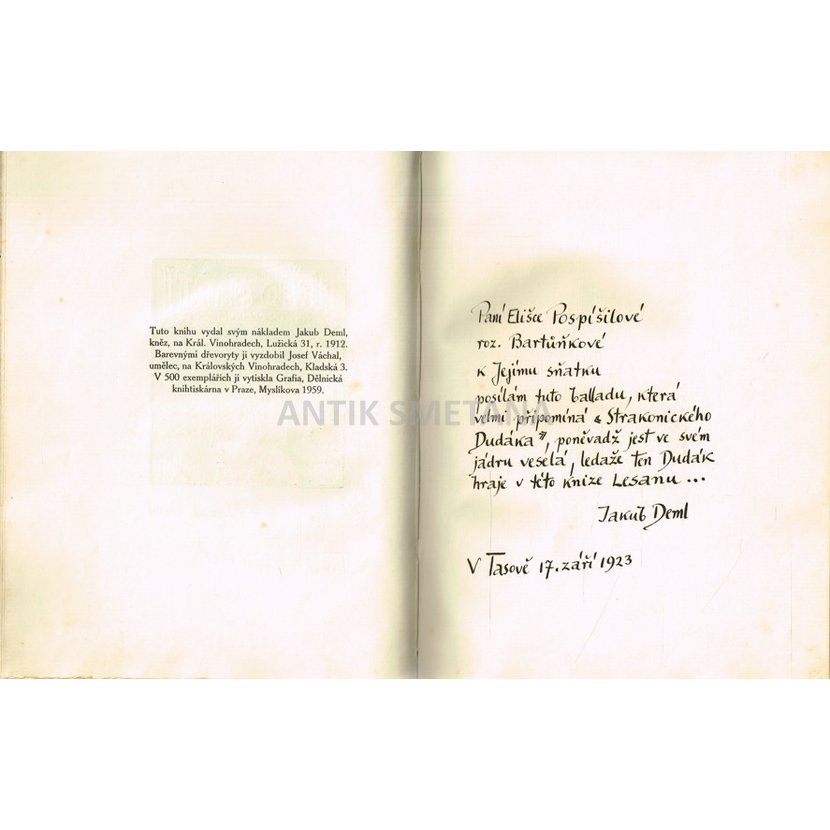 Tuto knihu vydal svým nákladem Jakub Deml,
kněz, na Král. Vinohradech, Lužická 31, r. 1912.
Barevnými dřevoryty ji vyzdobil Josef Váchal,
umělec, na Královských Vinohradech, Kladská 3.
V 500 exemplářích ji vytiskla Grafia, Dělnická
knihtiskárna v Praze, Myslíkova 1959.
ANTIK SMETANA
Paní Elišce Pospíšilové
roz. Bartůňkové
k Jejímu sňatku
posílám tuto balladu, která
velmi připomíná „Strakonického
Dudáka", poněvadž jest ve svém
jádru veselá, ledaže ten Dudák
hraje v této knize Lesanu ...
Jakub Deml
V Tasově 17. září 1923